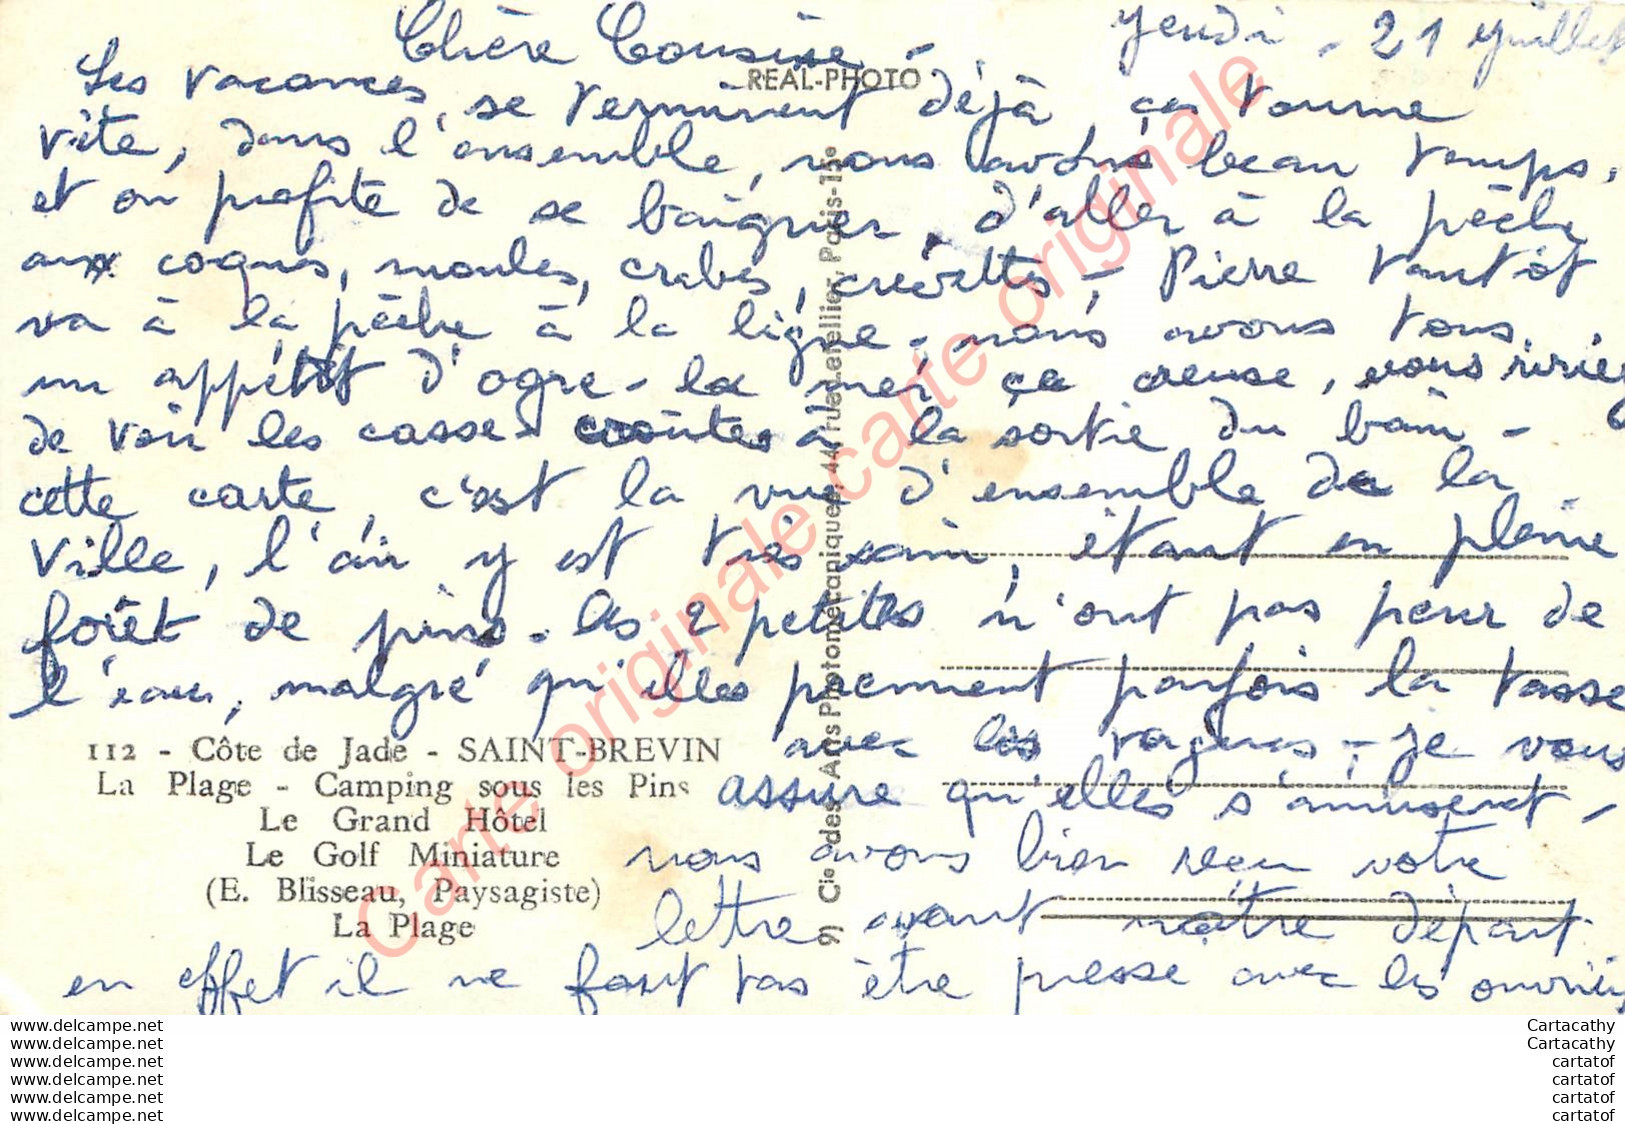 Jeudi - 21 Juillet
Chère Cousine -
REAL-PHOTO
Les vacances se terminent déjà, ça tourne
vite, dans l'ensemble, nous avons beau temps,
et on profite de se baigner, d'aller à la pêche
aux coques, moules, crabes, crevettes - Pierre tantôt
va à la pêche à la ligne - nous avons tous
un appétit d'ogre - la mer ça creuse, vous ririez
de voir les casse-croûtes à la sortie du bain -
cette carte, c'est la vue d'ensemble de la
ville, l'air y est très sain, étant en pleine
forêt de pins - les 2 petites n'ont pas peur de
l'eau, malgré qu'elles prennent parfois la tasse
avec les vagues - je vous
assure qu'elles s'amusent -
nous avons bien reçu votre
lettre avant notre départ
en effet il ne faut pas être pressé avec les ouvriers
112 - Côte de Jade - SAINT-BREVIN
La Plage - Camping sous les Pins
Le Grand Hôtel
Le Golf Miniature
(E. Blisseau, Paysagiste)
La Plage
9) Cie des Arts Photomécaniques, 44, rue Letellier, Paris-15e
Carte originale carte originale
www.delcampe.net
www.delcampe.net
www.delcampe.net
www.delcampe.net
www.delcampe.net
www.delcampe.net
Cartacathy
Cartacathy
cartatof
cartatof
cartatof
cartatof